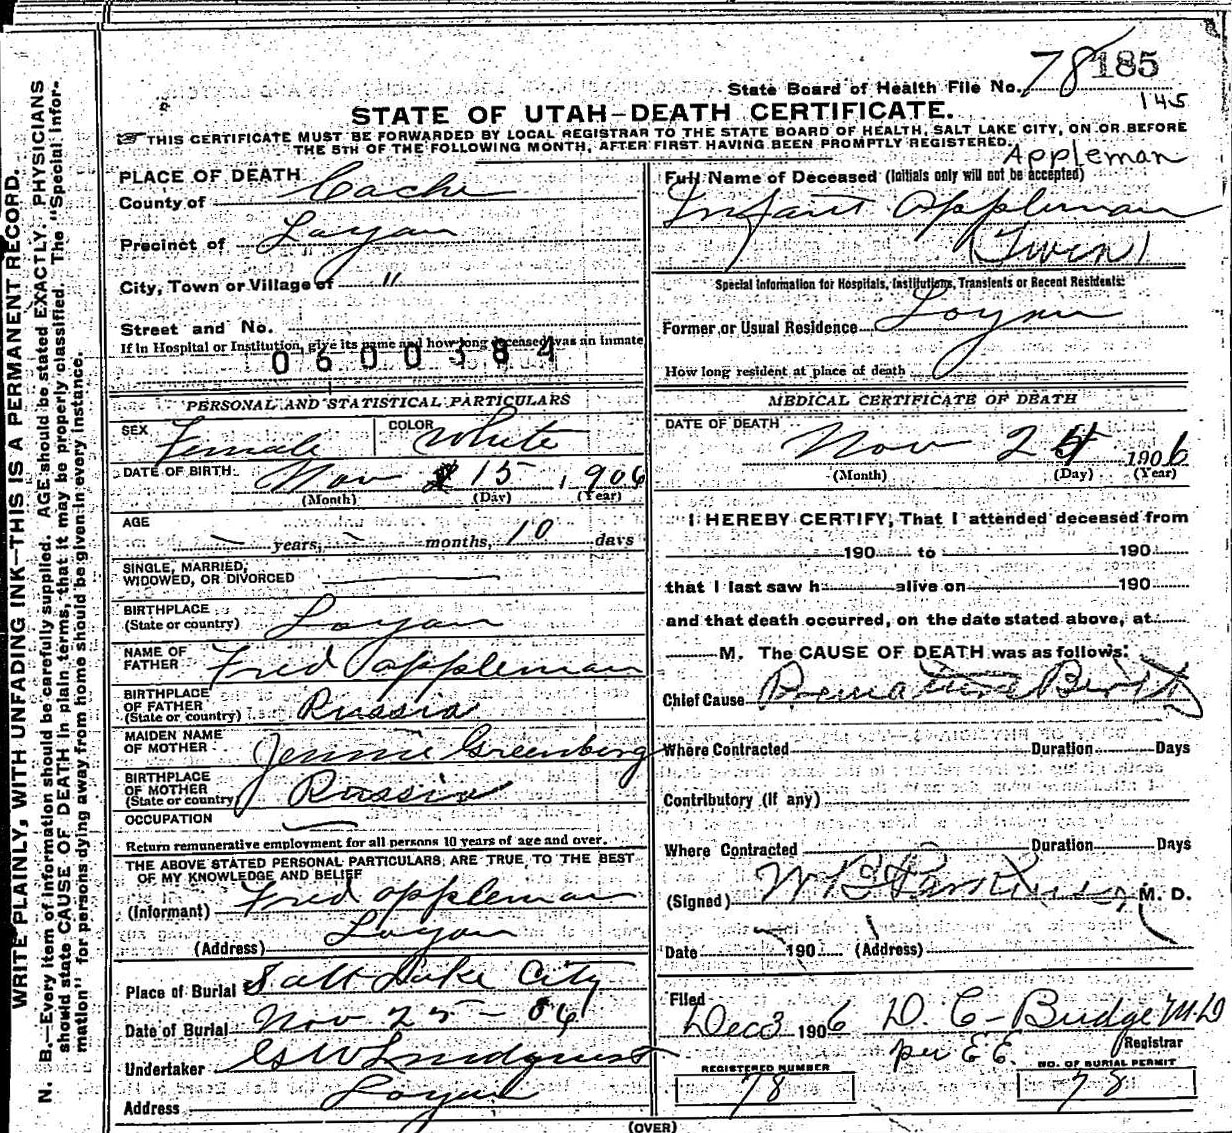 WRITE PLAINLY, WITH UNFADING INK—THIS IS A PERMANENT RECORD.
N. B.—Every item of information should be carefully supplied. AGE should be stated EXACTLY. PHYSICIANS
should state CAUSE OF DEATH in plain terms, that it may be properly classified. The "Special Infor-
mation" for persons dying away from home should be given in every instance.
State Board of Health File No. 78 185
145
STATE OF UTAH—DEATH CERTIFICATE.
THIS CERTIFICATE MUST BE FORWARDED BY LOCAL REGISTRAR TO THE STATE BOARD OF HEALTH, SALT LAKE CITY, ON OR BEFORE
THE 5TH OF THE FOLLOWING MONTH, AFTER FIRST HAVING BEEN PROMPTLY REGISTERED.
PLACE OF DEATH
County of Cache
Precinct of Logan
City, Town or Village of "
Street and No.
If in Hospital or Institution, give its name and how long deceased was an inmate
0600384
PERSONAL AND STATISTICAL PARTICULARS
SEX Female COLOR White
DATE OF BIRTH Nov 15, 1906
(Month) (Day) (Year)
AGE
— years, — months, 10 days
SINGLE, MARRIED,
WIDOWED, OR DIVORCED
BIRTHPLACE
(State or country) Logan
NAME OF
FATHER Fred Appleman
BIRTHPLACE
OF FATHER
(State or country) Russia
MAIDEN NAME
OF MOTHER Jennie Greenberg
BIRTHPLACE
OF MOTHER
(State or country) Russia
OCCUPATION —
Return remunerative employment for all persons 10 years of age and over.
THE ABOVE STATED PERSONAL PARTICULARS ARE TRUE TO THE BEST
OF MY KNOWLEDGE AND BELIEF
(Informant) Fred Appleman
(Address) Logan
Place of Burial Salt Lake City
Date of Burial Nov 25 - 06
Undertaker Lindquist
Address Logan
Appleman
Full Name of Deceased (Initials only will not be accepted)
Infant Appleman
(Twin)
Special Information for Hospitals, Institutions, Transients or Recent Residents:
Former or Usual Residence Logan
How long resident at place of death
MEDICAL CERTIFICATE OF DEATH
DATE OF DEATH
Nov 24 1906
(Month) (Day) (Year)
I HEREBY CERTIFY, That I attended deceased from
190 to 190
that I last saw h alive on 190
and that death occurred, on the date stated above, at
M. The CAUSE OF DEATH was as follows:
Chief Cause Premature Birth
Where Contracted Duration Days
Contributory (if any)
Where Contracted Duration Days
(Signed) W B Parkinson, M. D.
Date 190 (Address)
Filed
Dec 3 1906 D. C. Budge M.D
per E E. Registrar
REGISTERED NUMBER
78
NO. OF BURIAL PERMIT
78
(OVER)